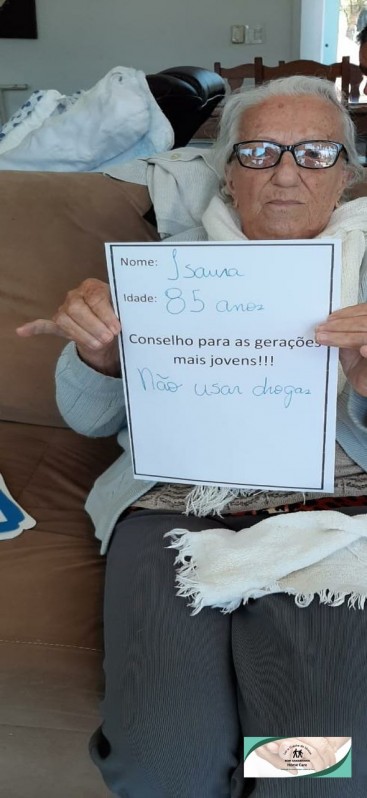 Nome: Isaura
Idade: 85 anos
Conselho para as gerações
mais jovens!!!
Não usar drogas
Home Care